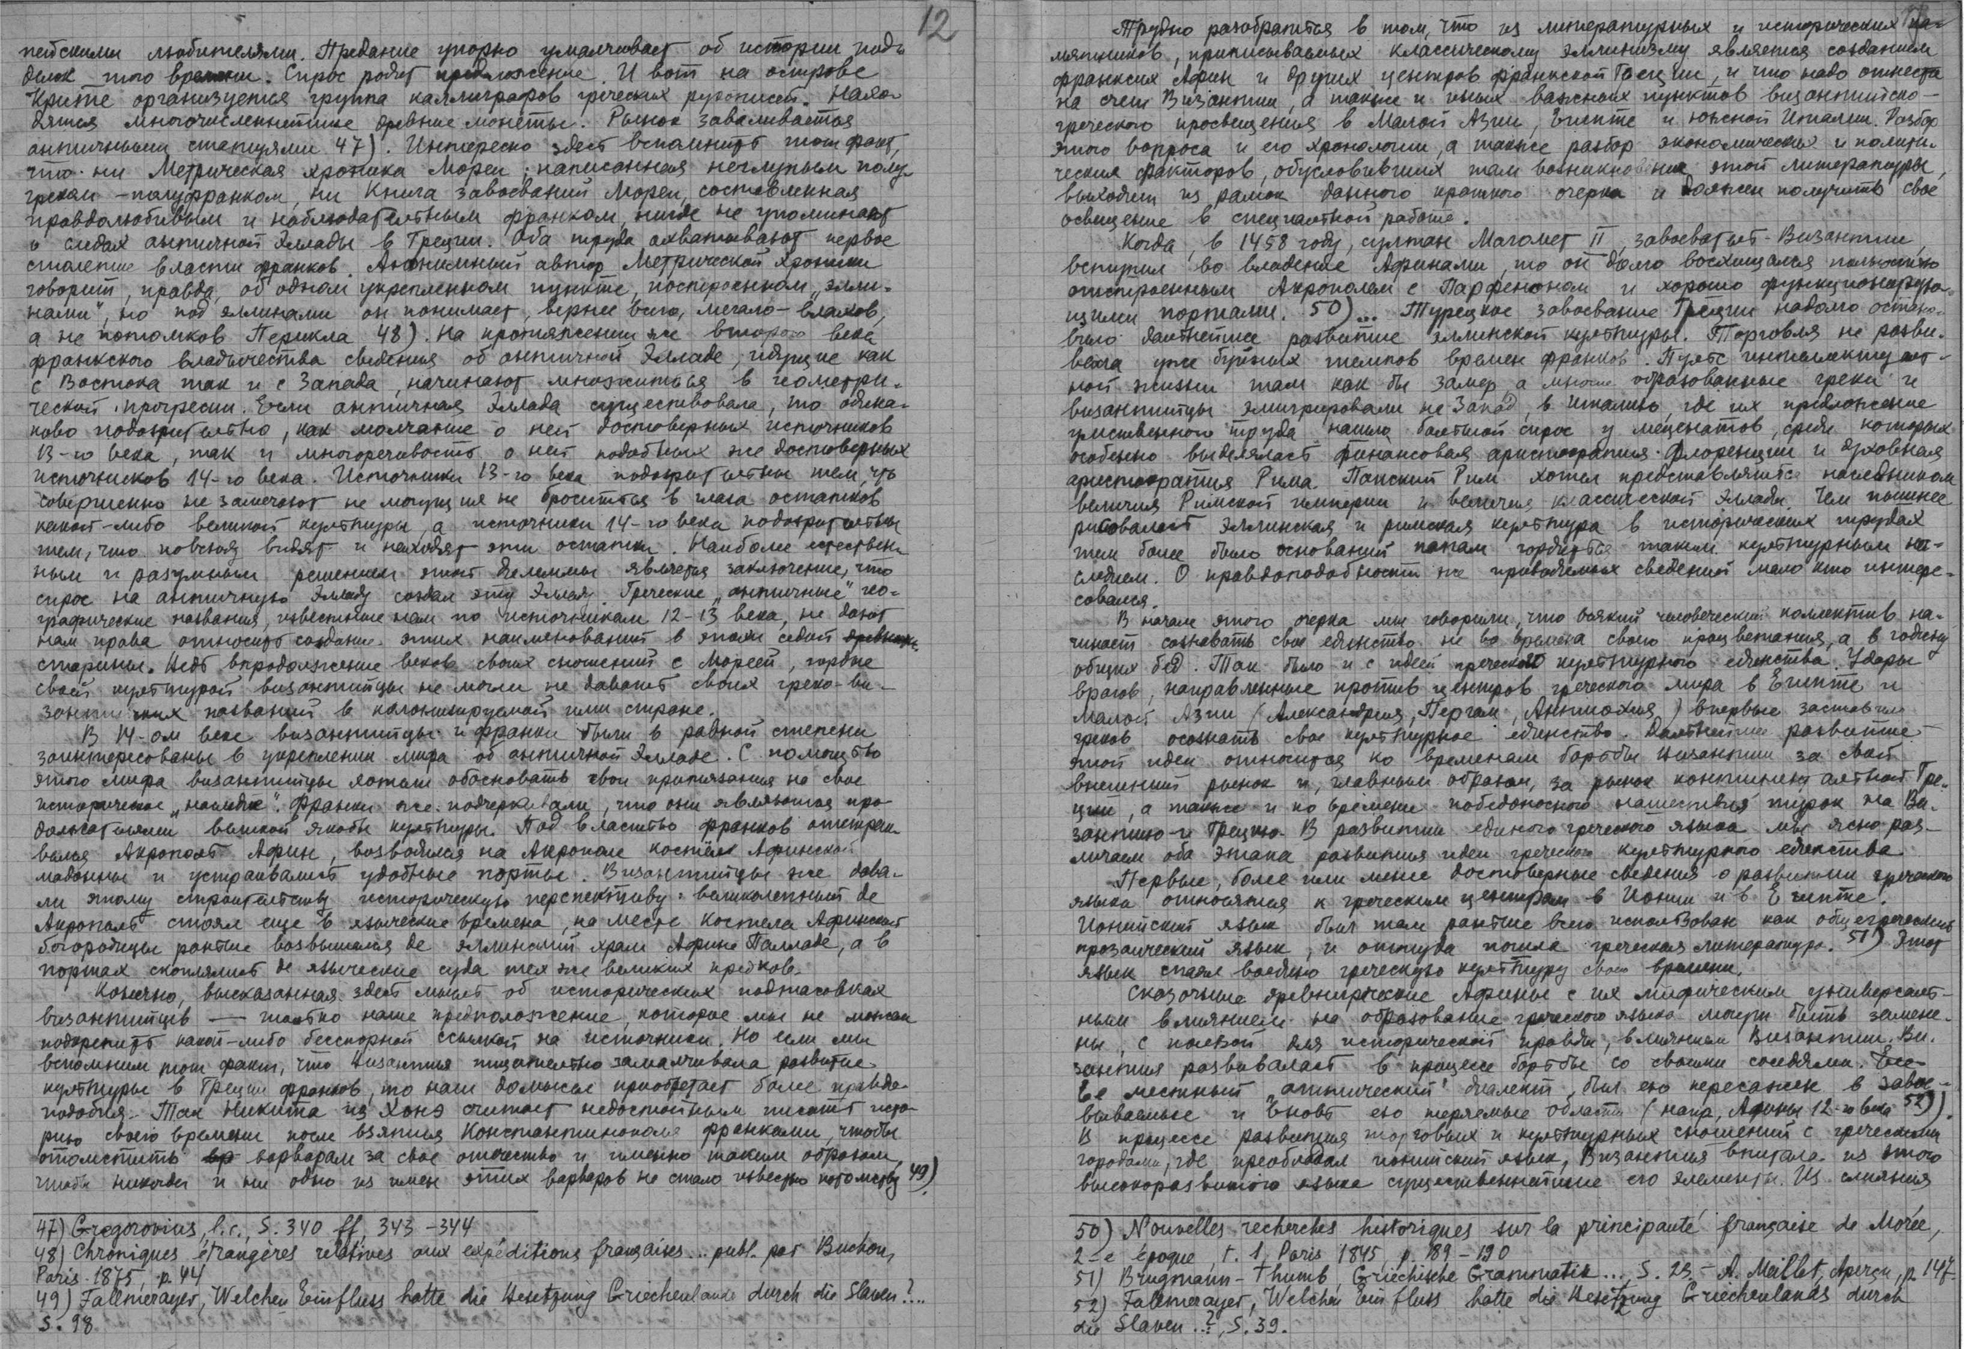 12
пейскими любителями. Предание упорно умалчивает об истории подъ
делок того времени. Спрос родит предложение. И вот на острове
Крите организуется группа каллиграфов греческих рукописей. Нахо-
дятся многочисленнейшие древние монеты. Рынок заваливается
античными статуями 47). Интересно здесь вспомнить тот факт,
что ни Метрическая хроника Мореи, написанная неглупым полу-
греком - полуфранком, ни Книга завоеваний Мореи, составленная
правдолюбивым и наблюдательным франком, нигде не упоминают
о следах античной Эллады в Греции. Оба труда охватывают первое
столетие власти франков. Анонимный автор Метрической хроники
говорит, правда, об одном укрепленном пункте, построенном „элли-
нами", но под эллинами он понимает, вернее всего, мегало-влахов,
а не потомков Перикла 48). На протяжении же второго века
франкского владычества сведения об античной Элладе, идущие как
с Востока так и с Запада, начинают множиться в геометри-
ческой прогрессии. Если античная Эллада существовала, то одина-
ково подозрительно, как молчание о ней достоверных источников
13-го века, так и многоречивость о ней подобных же достоверных
источников 14-го века. Источники 13-го века подозрительны тем, что
совершенно не замечают не могущие не броситься в глаза остатков
какой-либо великой культуры, а источники 14-го века подозрительны
тем, что повсюду видят и находят эти остатки. Наиболее естествен-
ным и разумным решением этой дилеммы является заключение, что
спрос на античную Элладу создал эту Элладу. Греческие „античные" гео-
графические названия, известные нам по источникам 12-13 века, не дают
нам права относить создание этих наименований в эпохи седой
старины. Ведь впродолжение веков своих сношений с Мореей, гордые
своей культурой византийцы не могли не давать своих греко-ви-
зантийских названий в колонизируемой ими стране.
В 14-ом веке византийцы и франки были в равной степени
заинтересованы в укреплении мифа об античной Элладе. С помощью
этого мифа византийцы хотели обосновать свои притязания на свое
историческое „наследие". Франки же подчеркивали, что они являются про-
должателями великой якобы культуры. Под властью франков отстраи-
вался Акрополь Афин, возводился на Акрополе костел Афинской
мадонны и устраивались удобные порты. Византийцы же дава-
ли этому строительству историческую перспективу: великолепный де
Акрополь стоял еще в языческие времена, на месте костела Афинской
богородицы раньше возвышался де эллинский храм Афине Палладе, а в
портах скоплялись де языческие суда тех же великих предков.
Конечно, высказанная здесь мысль об исторических подтасовках
византийцев — только наше предположение, которое мы не можем
подкрепить какой-либо бесспорной ссылкой на источники. Но если мы
вспомним тот факт, что Византия тщательно замалчивала развитие
культуры в Греции франков, то наш домысел приобретает более правдо-
подобия. Так Никита из Хонэ считает недостойным писать исто-
рию своего времени после взятия Константинополя франками, чтобы
отомстить варварам за свое отечество и именно таким образом,
чтобы никогда и ни одно из имен этих варваров не стало известно потомству 49)
47) Gregorovius, l.c., S. 340 ff, 343-344
48) Chroniques étrangères relatives aux expéditions françaises... publ. par Buchon,
Paris 1875, p. 44
49) Fallmerayer, Welchen Einfluss hatte die Besetzung Griechenlands durch die Slaven?...
S. 98
Трудно разобраться в том, что из литературных и исторических па-
мятников, приписываемых классическому эллинизму является созданием
франкских Афин и других центров франкской Греции, и что надо отнести
на счет Византии, а также и иных важных пунктов византийско-
греческого просвещения в Малой Азии, Египте и южной Италии. Разбор
этого вопроса и его хронологии, а также разбор экономических и полити-
ческих факторов, обусловивших там возникновение этой литературы,
выходит из рамок данного краткого очерка и должен получить свое
освещение в специальной работе.
Когда, в 1458 году, султан Магомет II, завоеватель Византии,
вступил во владение Афинами, то он долго восхищался полностью
отстроенным Акрополем с Парфеноном и хорошо функционирую-
щими портами. 50)... Турецкое завоевание Греции надолго остано-
вило дальнейшее развитие эллинской культуры. Торговля не разви-
вала уже буйных темпов времен франков. Пульс интеллектуаль-
ной жизни там как бы замер, а многие образованные греки и
византийцы эмигрировали на Запад, в Италию, где их предложение
умственного труда нашло большой спрос у меценатов, среди которых
особенно выделялась финансовая аристократия Флоренции и духовная
аристократия Рима. Папский Рим хотел представляться наследником
величия Римской империи и величия классической Эллады. Чем пышнее
рисовалась эллинская и римская культура в исторических трудах
тем более было оснований папам гордиться таким культурным на-
следием. О правдоподобности же приводимых сведений мало кто интере-
совался.
В начале этого очерка мы говорили, что всякий человеческий коллектив на-
чинает сознавать свое единство не во времена своего процветания, а в годину
общих бед. Так было и с идеей греческого культурного единства. Удары
врагов, направленные против центров греческого мира в Египте и
Малой Азии (Александрия, Пергам, Антиохия) впервые заставили
греков осознать свое культурное единство. Дальнейшее развитие
этой идеи относится ко временам борьбы Византии за свой
внешний рынок и, главным образом, за рынок континентальной Гре-
ции, а также и ко времени победоносного нашествия турок на Ви-
зантию и Грецию. В развитии единого греческого языка мы ясно раз-
личаем оба этапа развития идеи греческого культурного единства
Первые, более или менее достоверные сведения о развитии греческого
языка относятся к греческим центрам в Ионии и в Египте.
Ионийский язык был там раньше всего использован как общегреческий
прозаический язык, и оттуда пошла греческая литература. 51) Этот
язык спаял воедино греческую культуру своего времени.
Сказочные древнегреческие Афины с их мифическим универсаль-
ным влиянием на образование греческого языка могут быть замене-
ны, с пользой для исторической правды, влиянием Византии. Ви-
зантия развивалась в процессе борьбы со своими соседями.
Ее местный „аттический" диалект был ею пересажен в завое-
вываемые и вновь ею теряемые области (напр. Афины 12-го века 52)).
В процессе развития торговых и культурных сношений с греческими
городами, где преобладал ионийский язык, Византия впитала из этого
высокоразвитого языка существеннейшие его элементы. Из слияния
50) Nouvelles recherches historiques sur la principauté française de Morée,
2-e époque, t. 1, Paris 1845, p. 189-190
51) Brugmann-Thumb, Griechische Grammatik..., S. 23. - A. Meillet, Aperçu, p. 147.
52) Fallmerayer, Welchen Einfluss hatte die Besetzung Griechenlands durch
die Slaven...?, S. 39.